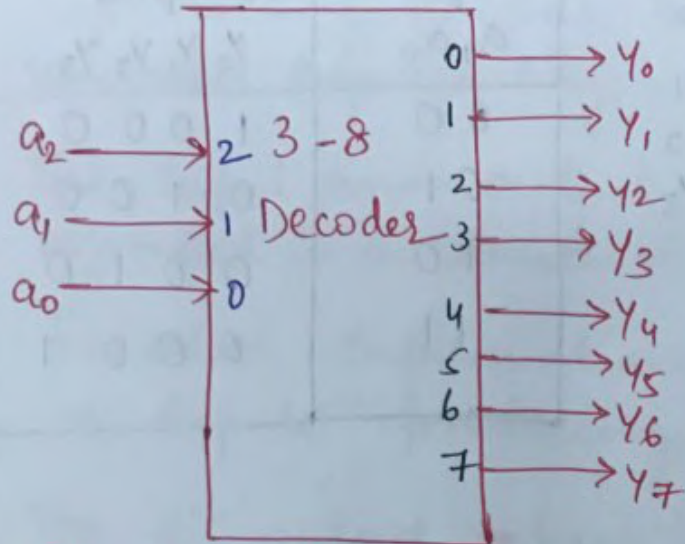 a2
a1
a0
2 3-8
1 Decoder
0
0 Y0
1 Y1
2 Y2
3 Y3
4 Y4
5 Y5
6 Y6
7 Y7